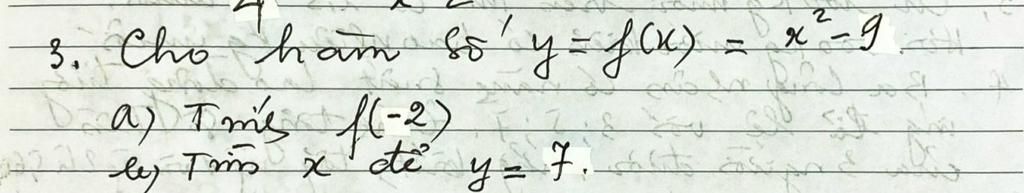 3. Cho hàm số y = f(x) = x² - 9
a) Tính f(-2)
b) Tìm x để y = 7.